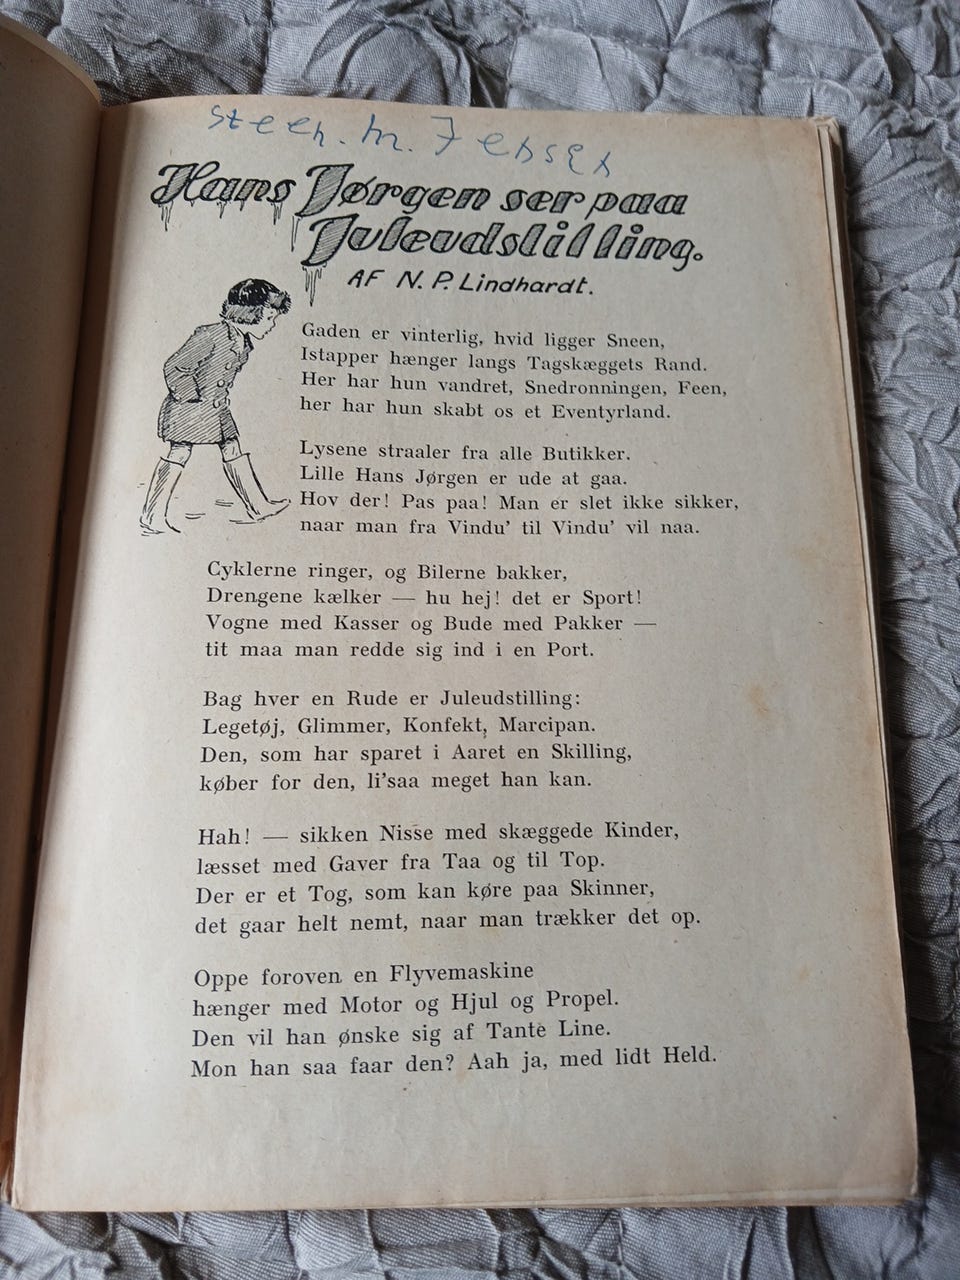 Steen. M. Jensen
Hans Jørgen ser paa
Juleudstilling.
AF N. P. Lindhardt.
Gaden er vinterlig, hvid ligger Sneen,
Istapper hænger langs Tagskæggets Rand.
Her har hun vandret, Snedronningen, Feen,
her har hun skabt os et Eventyrland.
Lysene straaler fra alle Butikker.
Lille Hans Jørgen er ude at gaa.
Hov der! Pas paa! Man er slet ikke sikker,
naar man fra Vindu' til Vindu' vil naa.
Cyklerne ringer, og Bilerne bakker,
Drengene kælker — hu hej! det er Sport!
Vogne med Kasser og Bude med Pakker —
tit maa man redde sig ind i en Port.
Bag hver en Rude er Juleudstilling:
Legetøj, Glimmer, Konfekt, Marcipan.
Den, som har sparet i Aaret en Skilling,
køber for den, li'saa meget han kan.
Hah! — sikken Nisse med skæggede Kinder,
læsset med Gaver fra Taa og til Top.
Der er et Tog, som kan køre paa Skinner,
det gaar helt nemt, naar man trækker det op.
Oppe foroven en Flyvemaskine
hænger med Motor og Hjul og Propel.
Den vil han ønske sig af Tante Line.
Mon han saa faar den? Aah ja, med lidt Held.